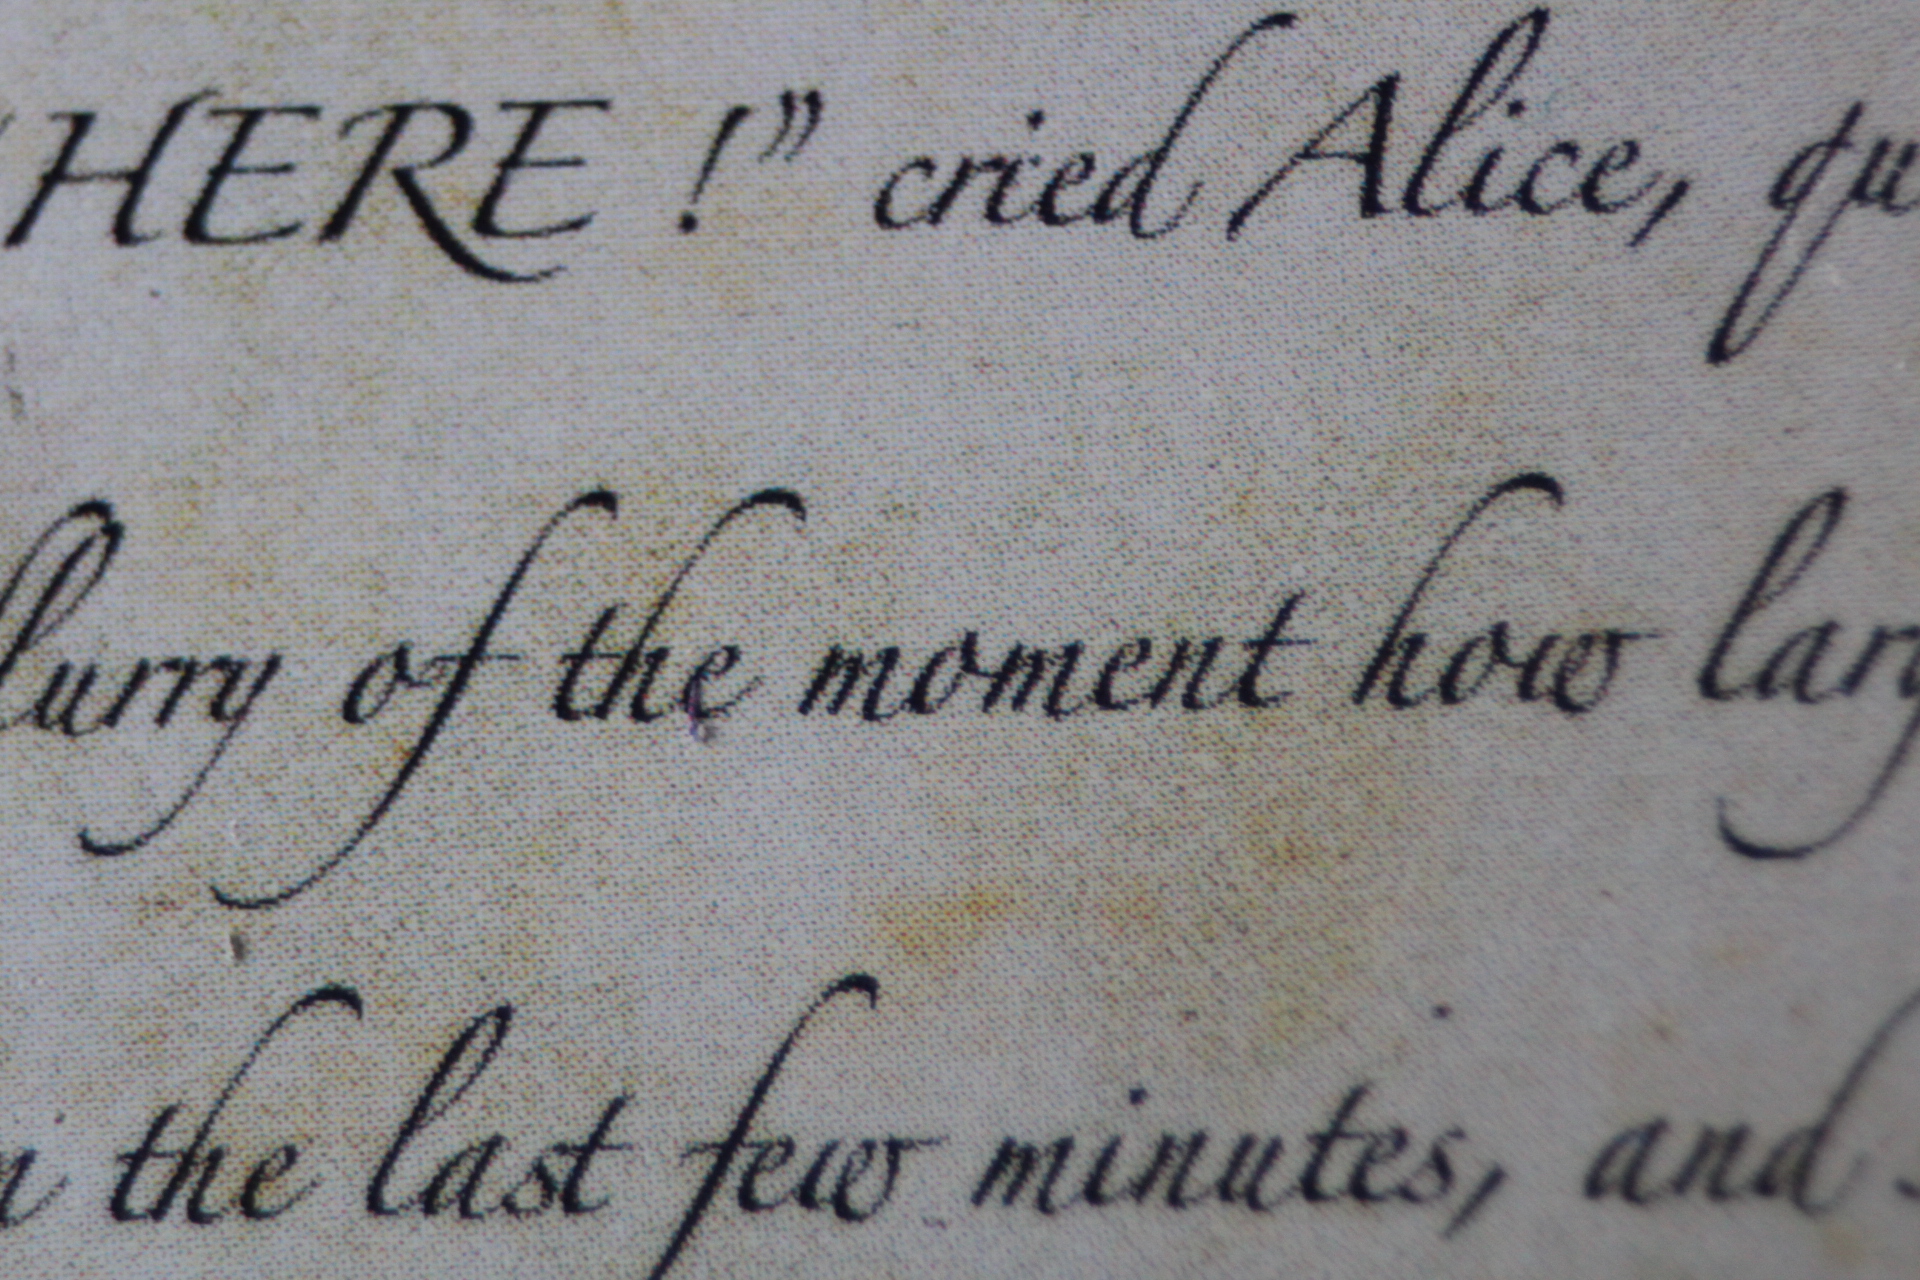 “HERE !” cried Alice, qu
lurry of the moment how larg
n the last few minutes, and